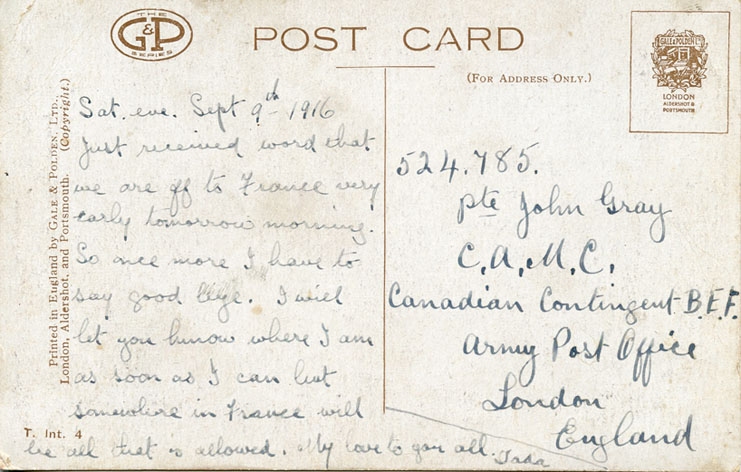 THE
G&P
SERIES
POST CARD
(FOR ADDRESS ONLY.)
GALE & POLDEN LTD
LONDON
ALDERSHOT &
PORTSMOUTH
Printed in England by GALE & POLDEN, LTD.,
London, Aldershot, and Portsmouth. (Copyright.)
Sat. eve. Sept 9th 1916
Just received word that
we are off to France very
early tomorrow morning.
So once more I have to
say good bye. I will
let you know where I am
as soon as I can but
somewhere in France will
be all that is allowed. My love to you all. Dada
524.785.
Pte John Gray
C.A.M.C.
Canadian Contingent B.E.F.
Army Post Office
London
England
T. Int. 4